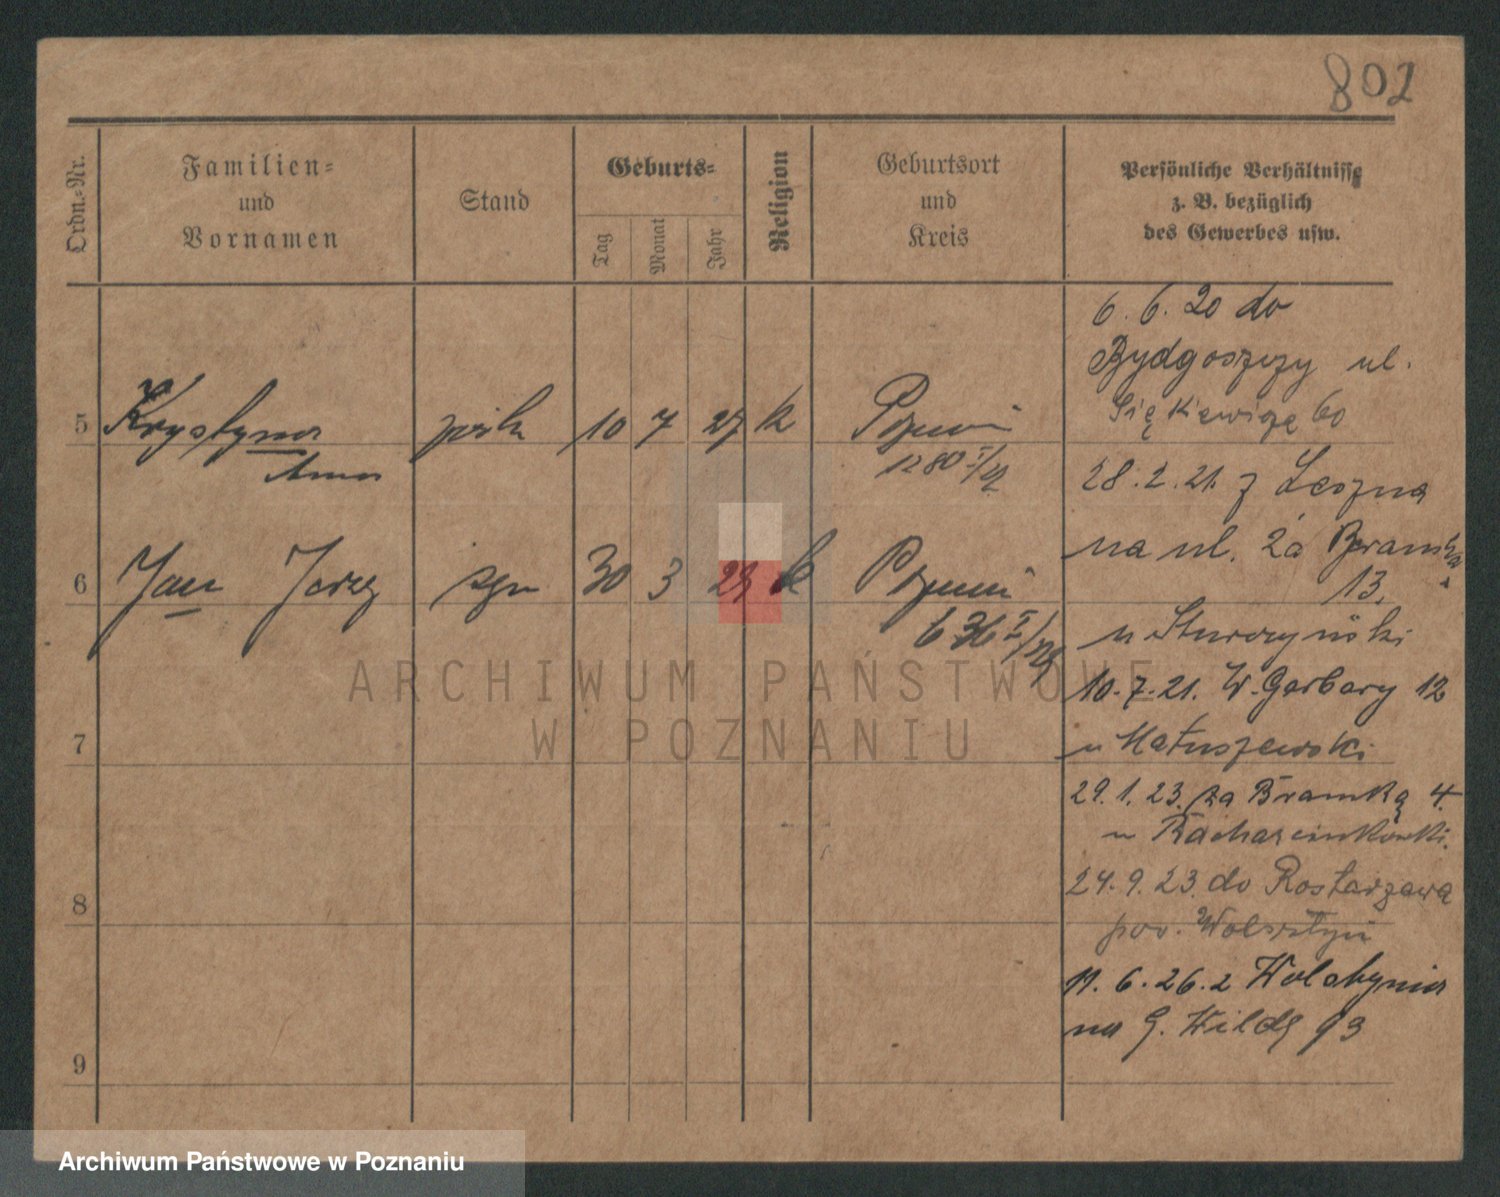 802
Ordn.-Nr.
Familien-
und
Vornamen
Stand
Geburts-
Tag
Monat
Jahr
Religion
Geburtsort
und
Kreis
Persönliche Verhältnisse
z. B. bezüglich
des Gewerbes usw.
5 Krystyna 10 7 27 k
Anna
6 Jan Jerzy syn 30 3 29 k
7
8
9
6.6.20 do
Bydgoszczy ul.
60
28.2.21. z Leszna
na ul. Za Bramką
13.
10.7.21. W. Garbary 12
u Matuszewski
29.1.23. za Bramką 4.
24.9.23. do Rostarzewa
pow. Wolsztyn
11.6.26. z
na G. Wildę 93
ARCHIWUM PAŃSTWOWE
W POZNANIU
Archiwum Państwowe w Poznaniu